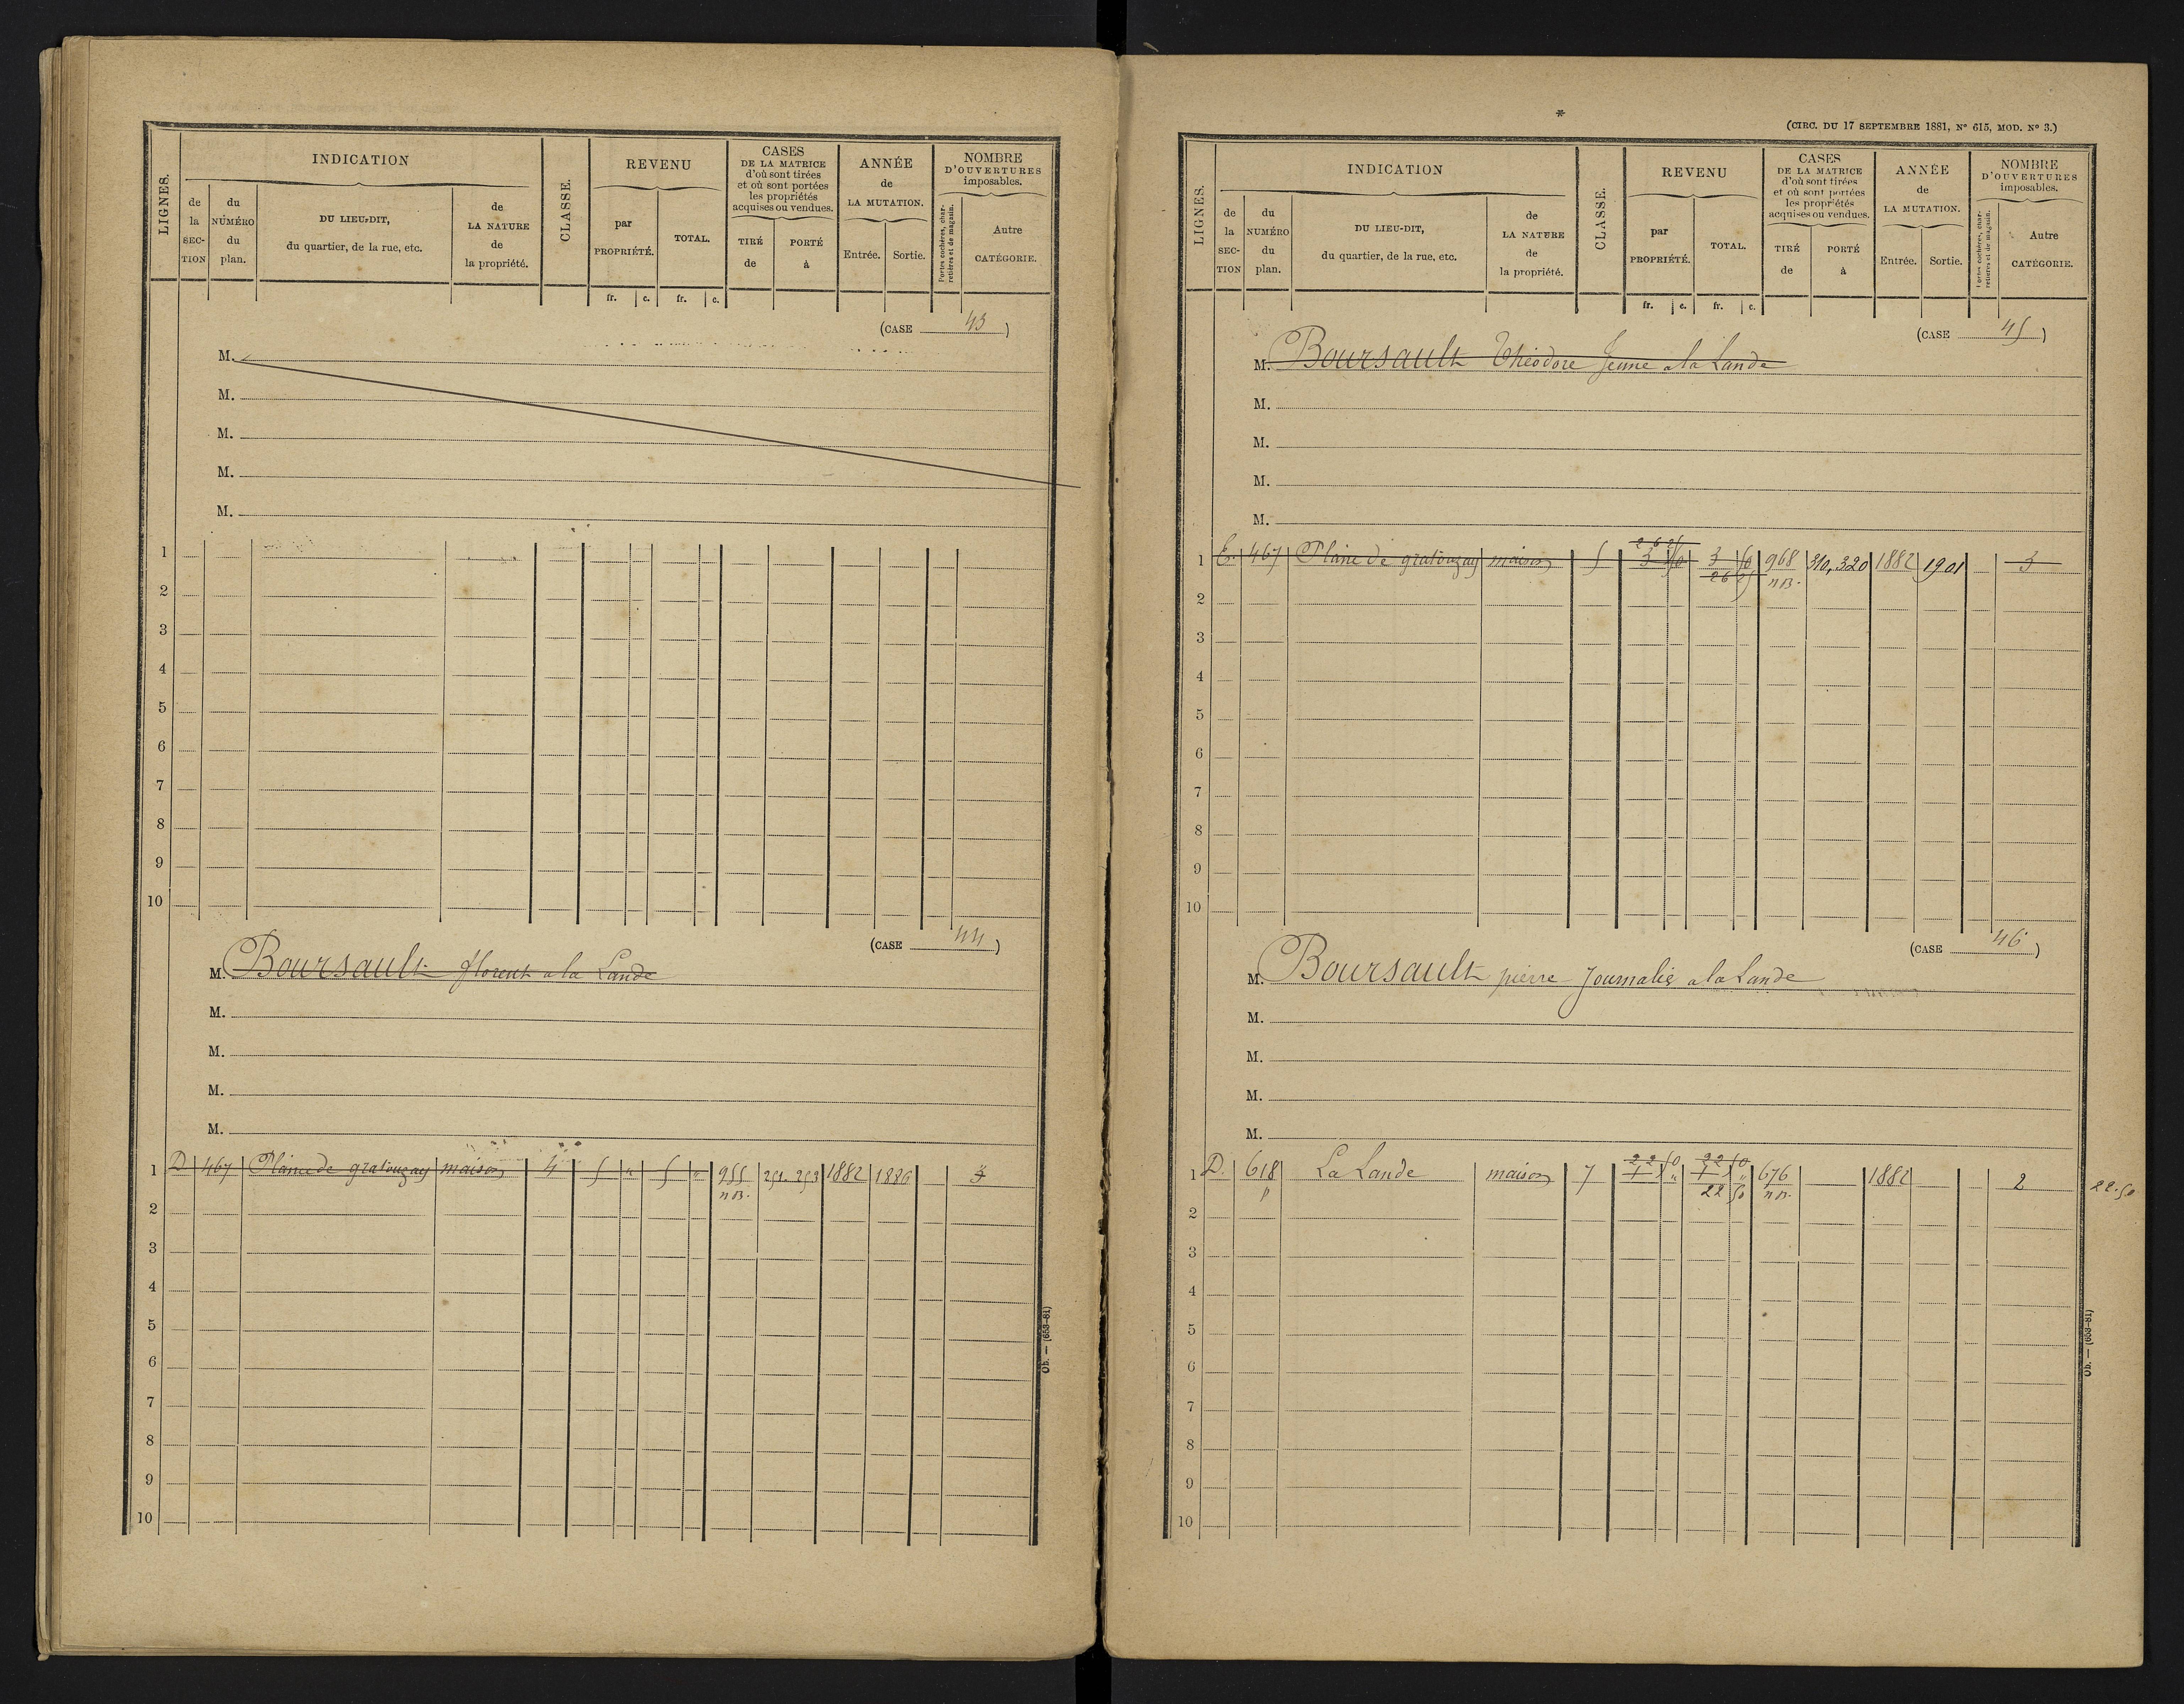 LIGNES.
INDICATION
de la SECTION
du NUMÉRO du plan.
DU LIEU-DIT, du quartier, de la rue, etc.
de LA NATURE de la propriété.
CLASSE.
REVENU
par PROPRIÉTÉ.
TOTAL.
fr. c. fr. c.
CASES
DE LA MATRICE
d'où sont tirées
et où sont portées
les propriétés
acquises ou vendues.
TIRÉ de
PORTÉ à
ANNÉE
de
LA MUTATION.
Entrée. Sortie.
NOMBRE
D'OUVERTURES
imposables.
Portes cochères, charretières et de magasin.
Autre CATÉGORIE.
(CASE 43)
M.
M.
M.
M.
M.
1
2
3
4
5
6
7
8
9
10
(CASE 44)
M. Boursault florent a la Lande
M.
M.
M.
M.
1 D 467 Plaine de gratouzay maison 4 5 " 5 " 955 251. 253 1882 1886 3
n B.
2
3
4
5
6
7
8
9
10
Ob. — (653-81)
*
(CIRC. DU 17 SEPTEMBRE 1881, N° 615, MOD. N° 3.)
LIGNES.
INDICATION
de la SECTION
du NUMÉRO du plan.
DU LIEU-DIT, du quartier, de la rue, etc.
de LA NATURE de la propriété.
CLASSE.
REVENU
par PROPRIÉTÉ.
TOTAL.
fr. c. fr. c.
CASES
DE LA MATRICE
d'où sont tirées
et où sont portées
les propriétés
acquises ou vendues.
TIRÉ de
PORTÉ à
ANNÉE
de
LA MUTATION.
Entrée. Sortie.
NOMBRE
D'OUVERTURES
imposables.
Portes cochères, charretières et de magasin.
Autre CATÉGORIE.
(CASE 45)
M. Boursault Théodore Jeune a la Lande
M.
M.
M.
M.
26 25
1 E. 467 Plaine de gratouzay maison 5 3 50 3 50 968 310, 320 1882 1901 3
26 25 n B.
2
3
4
5
6
7
8
9
10
(CASE 46)
M. Boursault pierre Journalier a la Lande
M.
M.
M.
M.
22 50 22 50
1 D. 618 La Lande maison 7 676 1882 2 22.50
p 22 50 n B.
2
3
4
5
6
7
8
9
10
Ob. — (653-81)